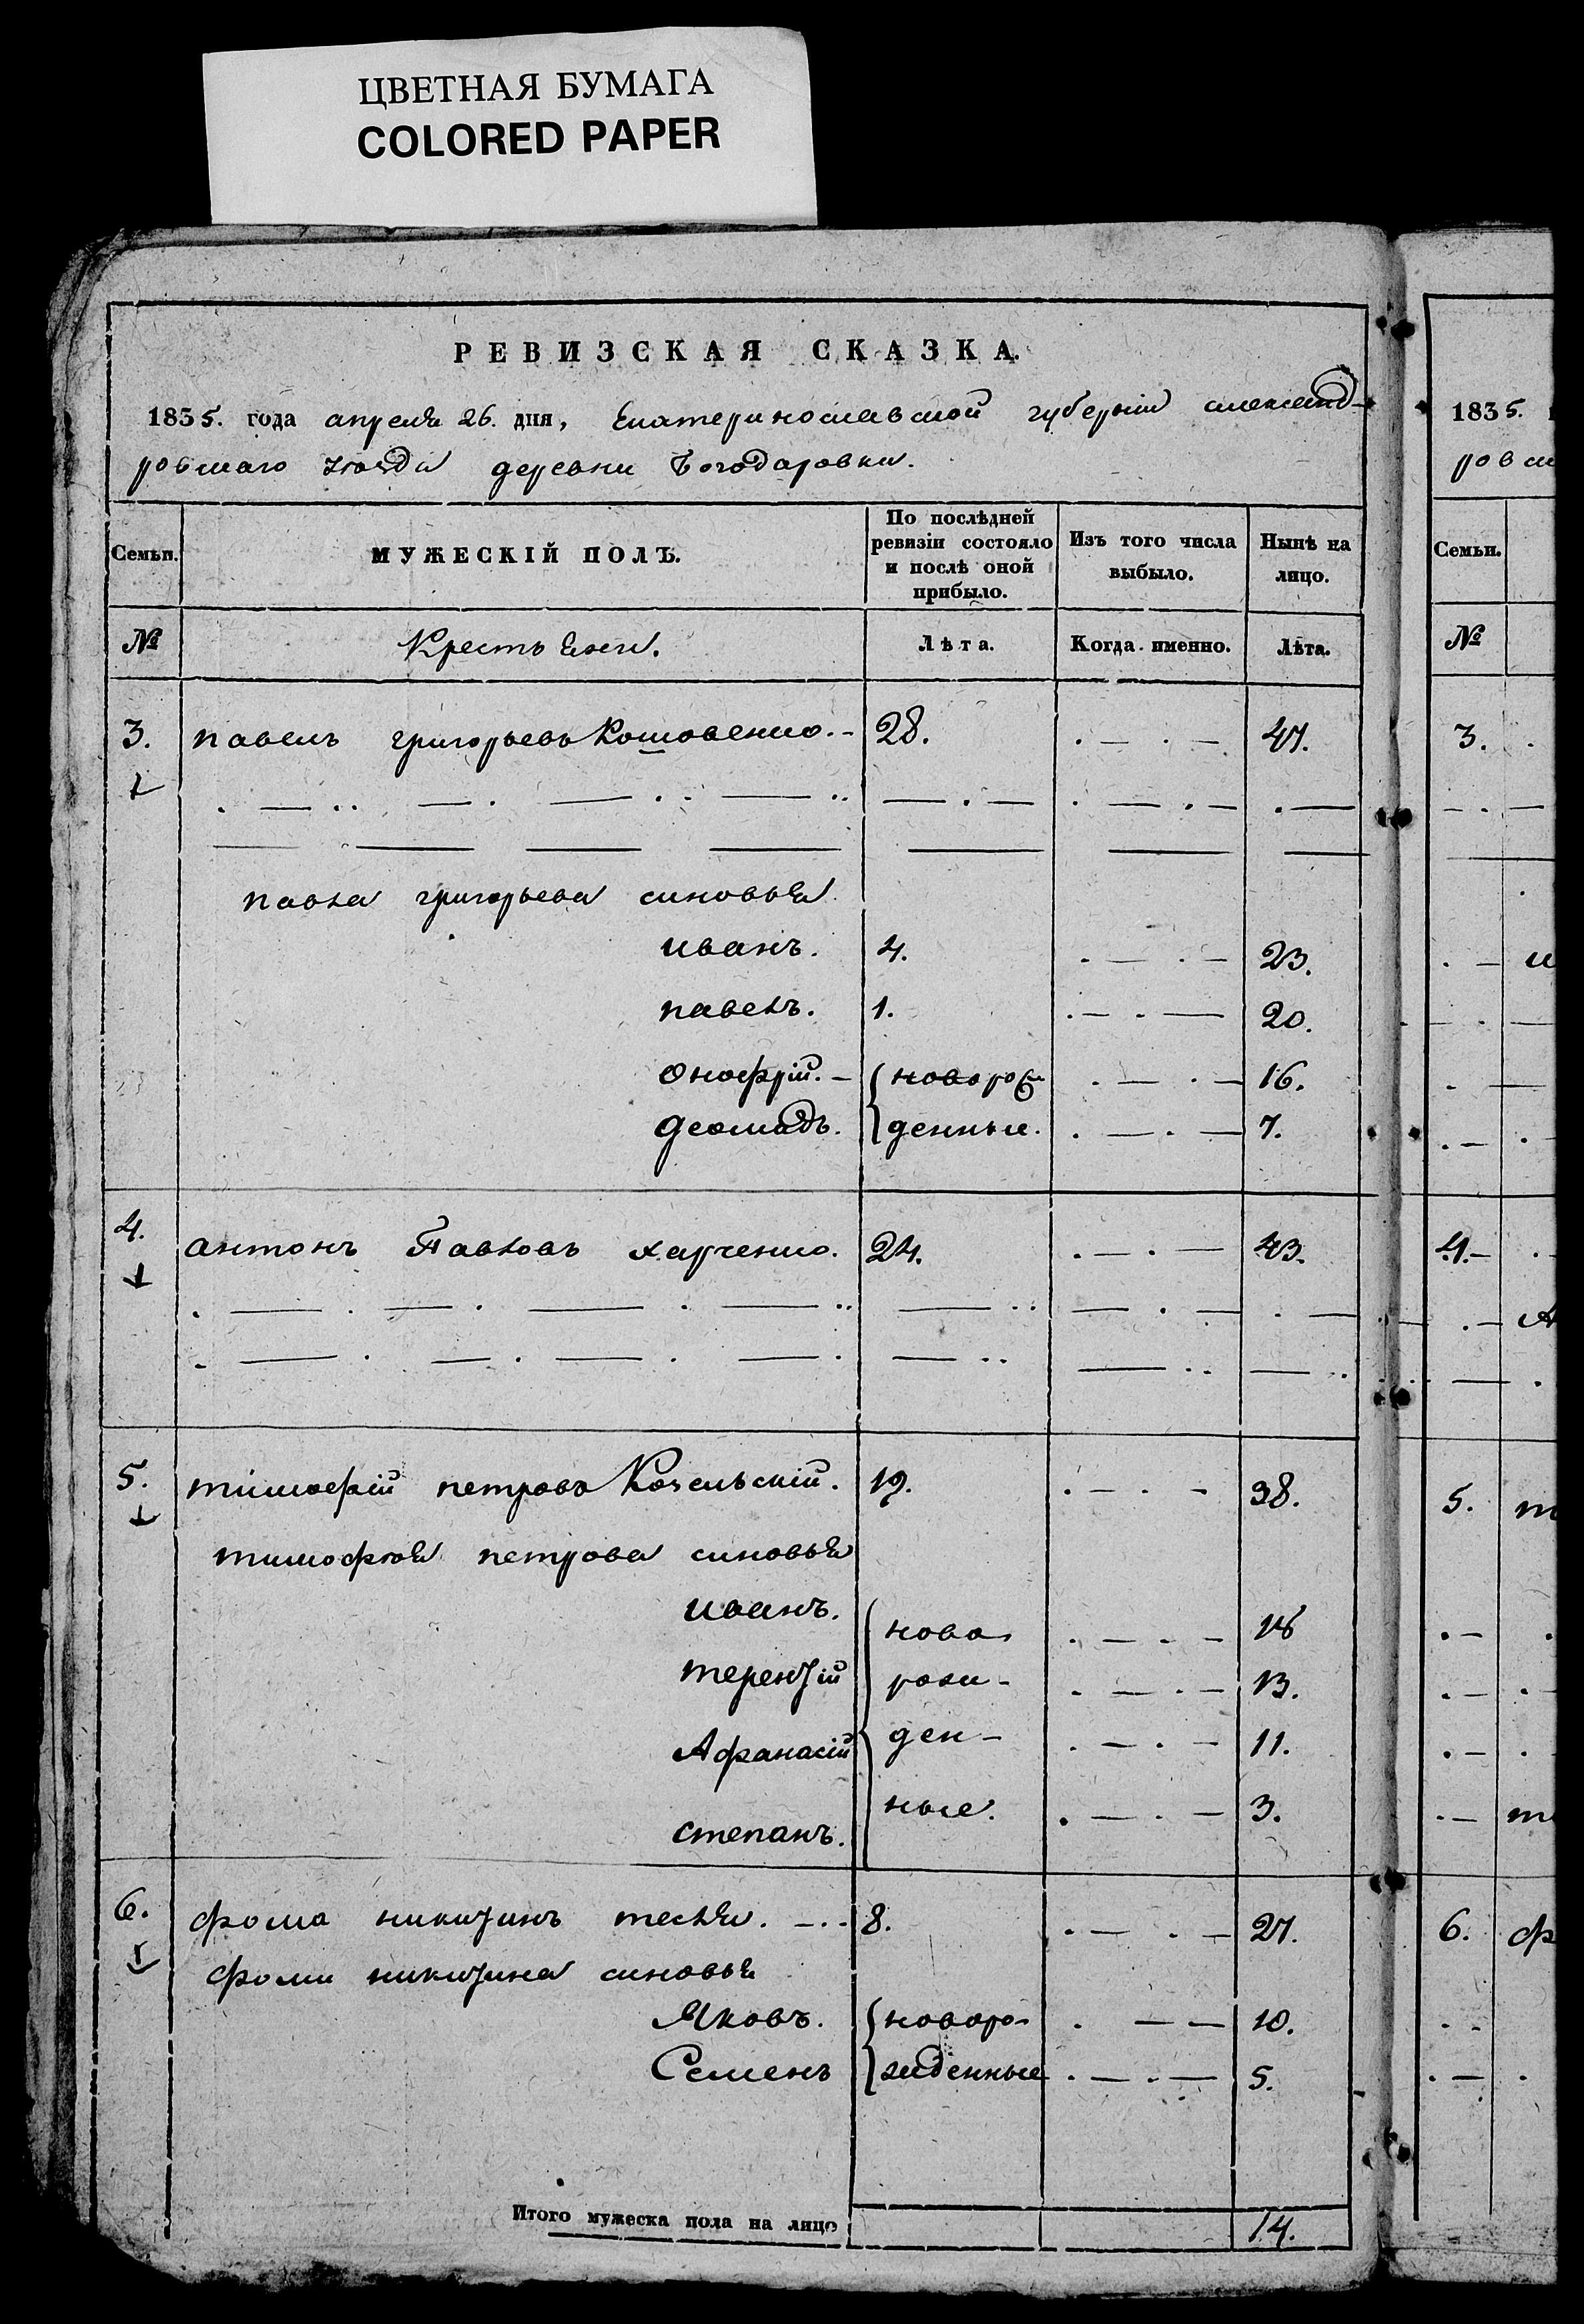 ЦВЕТНАЯ БУМАГА
COLORED PAPER
РЕВИЗСКАЯ СКАЗКА.
1835. года апреля 26. дня, Екатеринославской губернiи александ-
ровскаго уѣзда деревни Богодаровки.
Семьи. МУЖЕСКІЙ ПОЛЪ. По послѣдней ревизіи состояло и послѣ оной прибыло. Изъ того числа выбыло. Нынѣ на лицо.
№ Крестьяне. Лѣта. Когда именно. Лѣта.
3. павелъ григорьевъ Кошовенко. 28. 47.
павла григорьева синовья
иванъ. 4. 23.
павелъ. 1. 20.
Онофрiй. новорож 16.
денные. 7.
4. антонъ Павловъ харченко. 24. 43.
5. тимофiй петровъ 19. 38.
тимофѣя петрова синовья
иванъ. ново
терентiй рож- 13.
Афанасiй ден- 11.
степанъ. ные. 3.
6. фома никитинъ тесля. 8. 27.
фоми никитина синовья
Яковъ. новоро 10.
Семенъ жденные 5.
Итого мужеска пола на лицо 14.
1835.
ров
Семьи.
№
3.
4.
5.
6.